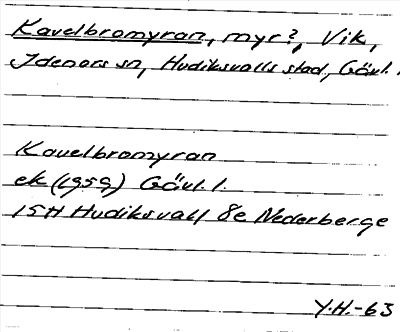 Kavelbromyran, myr?, Vik,
Idenors sn, Hudiksvalls stad, Gävl. l.
Kavelbromyran
ek (1959) Gävl. l.
15H Hudiksvall 8e Nederberge
Y.H.-63